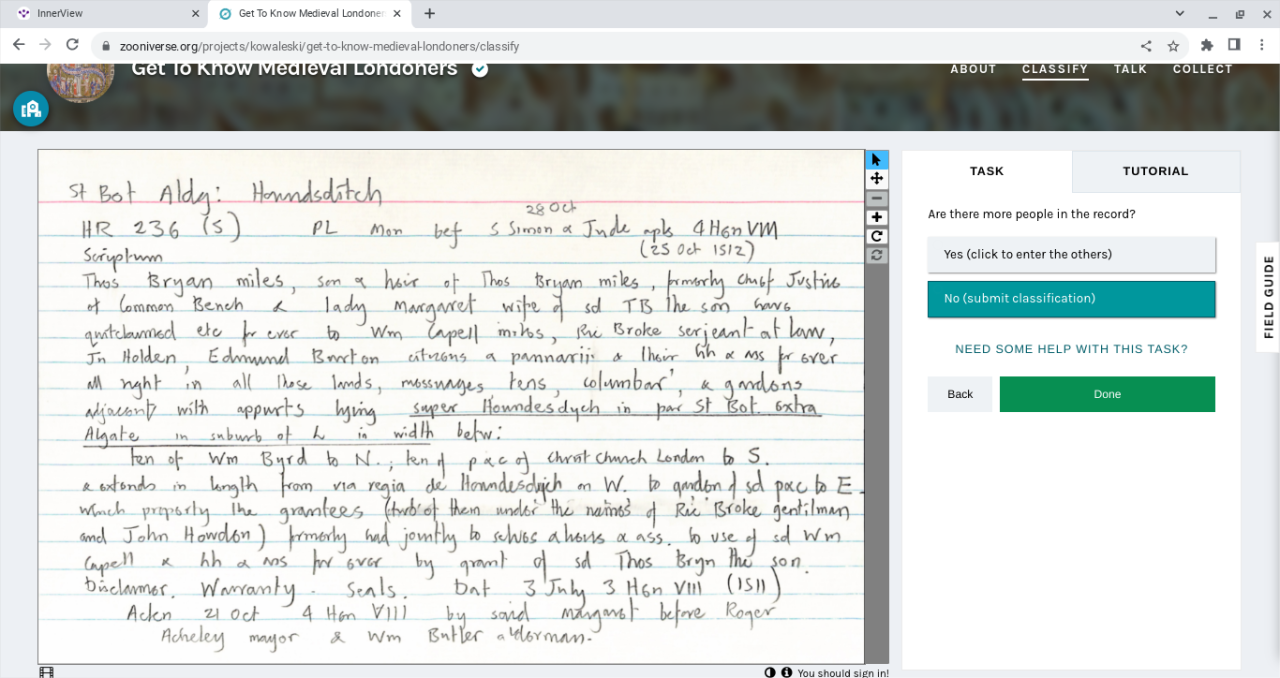 InnerView
Get To Know Medieval Londoner
zooniverse.org/projects/kowaleski/get-to-know-medieval-londoners/classify
Get To Know Medieval Londoners
ABOUT CLASSIFY TALK COLLECT
St Bot Aldg: Houndsditch
28 Oct
HR 236 (5) PL Mon bef S Simon & Jude apls 4 Hen VIII
(25 Oct 1512)
Scriptum
Thos Bryan miles, son & heir of Thos Bryan miles, formerly chief Justice
of Common Bench & lady Margaret wife of sd TB the son have
quitclaimed etc for ever to Wm Capell miles, Ric Broke serjeant at law,
Jn Holden, Edmund Burton citizens & pannarii & their hh & ass for ever
all right in all those lands, messuages tens, columbar', & gardens
adjacent with appurts lying super Houndesdych in par St Bot. extra
Algate in suburb of L in width betw:
ten of Wm Byrd to N.; ten of p&c of Christchurch London to S.
& extends in length from via regia de Houndesdych on W. to garden of sd p&c to E.
which property the grantees (two of them under the names of Ric Broke gentilman
and John Howdon) formerly had jointly to selves & heirs & ass. to use of sd Wm
Capell & hh & ass for ever by grant of sd Thos Bryn the son.
Disclaimer. Warranty. Seals. Dat 3 July 3 Hen VIII (1511)
Ackn 21 Oct 4 Hen VIII by said Margaret before Roger
Acheley mayor & Wm Butler alderman.
TASK
TUTORIAL
Are there more people in the record?
Yes (click to enter the others)
No (submit classification)
NEED SOME HELP WITH THIS TASK?
Back
Done
FIELD GUIDE
You should sign in!